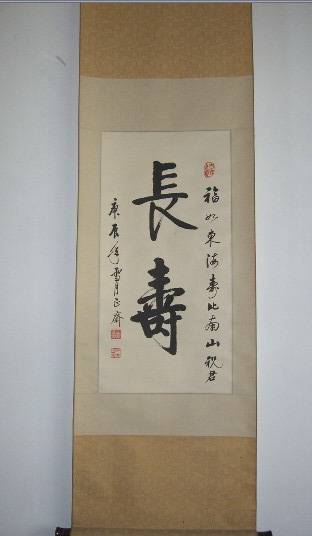 福如東海壽比南山祝君
長壽
庚辰年雪月正齋